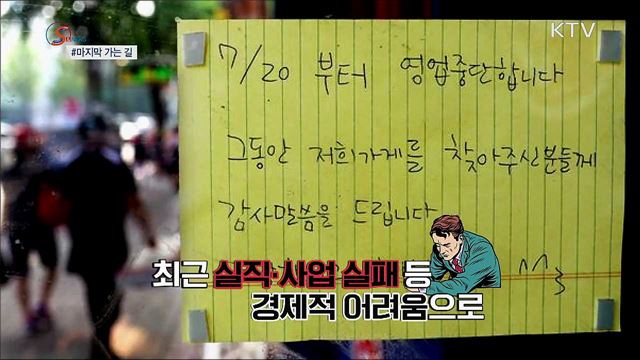 KTV
#마지막 가는 길
7/20 부터 영업중단합니다
그동안 저희가게를 찾아주신분들께
감사말씀을 드립니다
^^
최근 실직·사업 실패 등
경제적 어려움으로